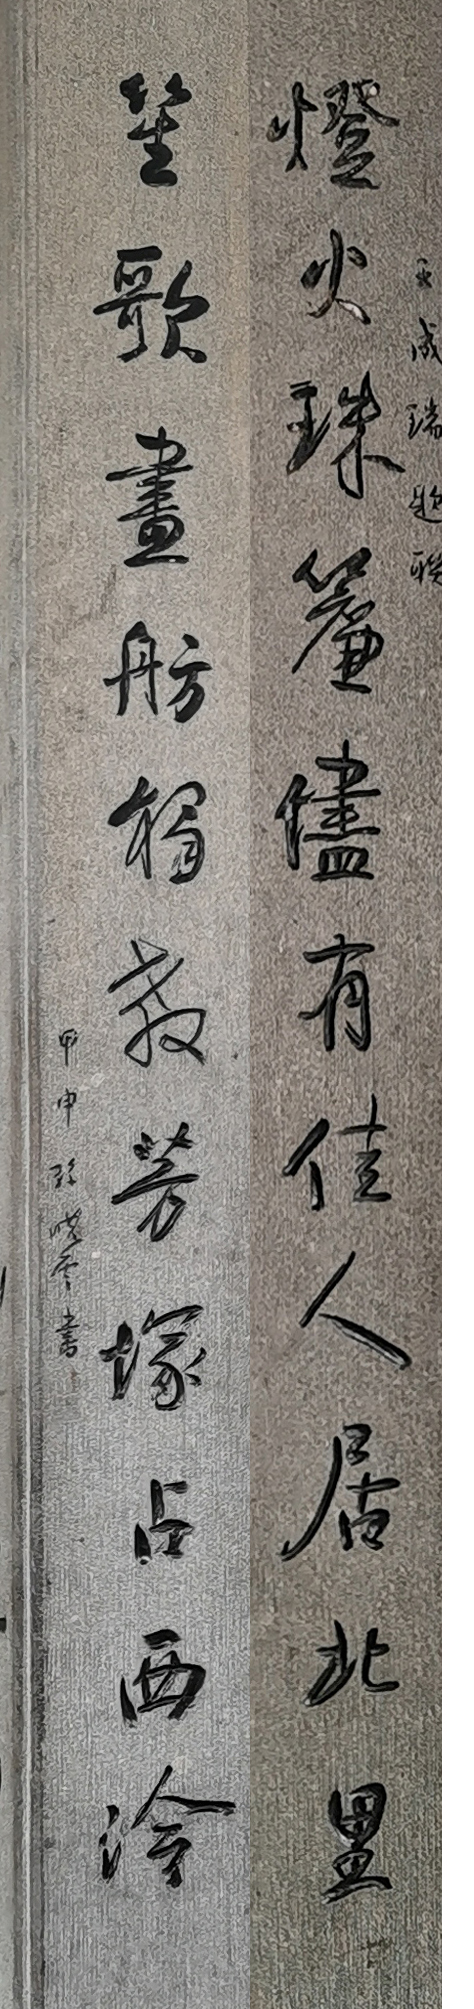 王成瑞題联
燈火珠簾儘有佳人居北里
笙歌畫舫獨教芳塚占西泠
甲申孫晓雲書